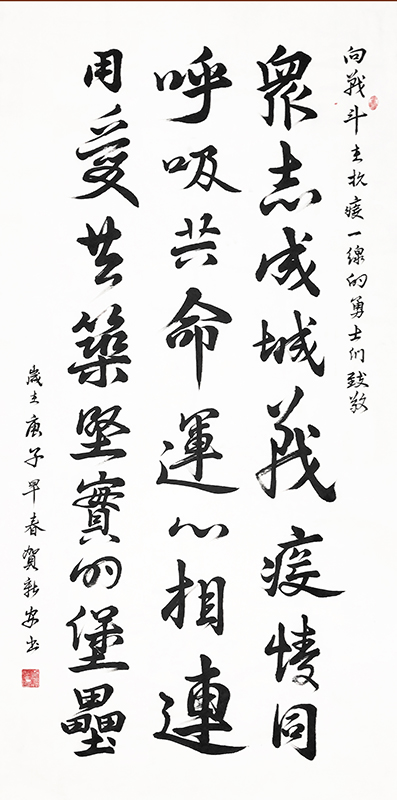 向戰斗在抗疫一線的勇士们致敬
眾志成城戰疫情同
呼吸共命運心相連
用愛共築堅實的堡壘
歲在庚子早春賀新安书